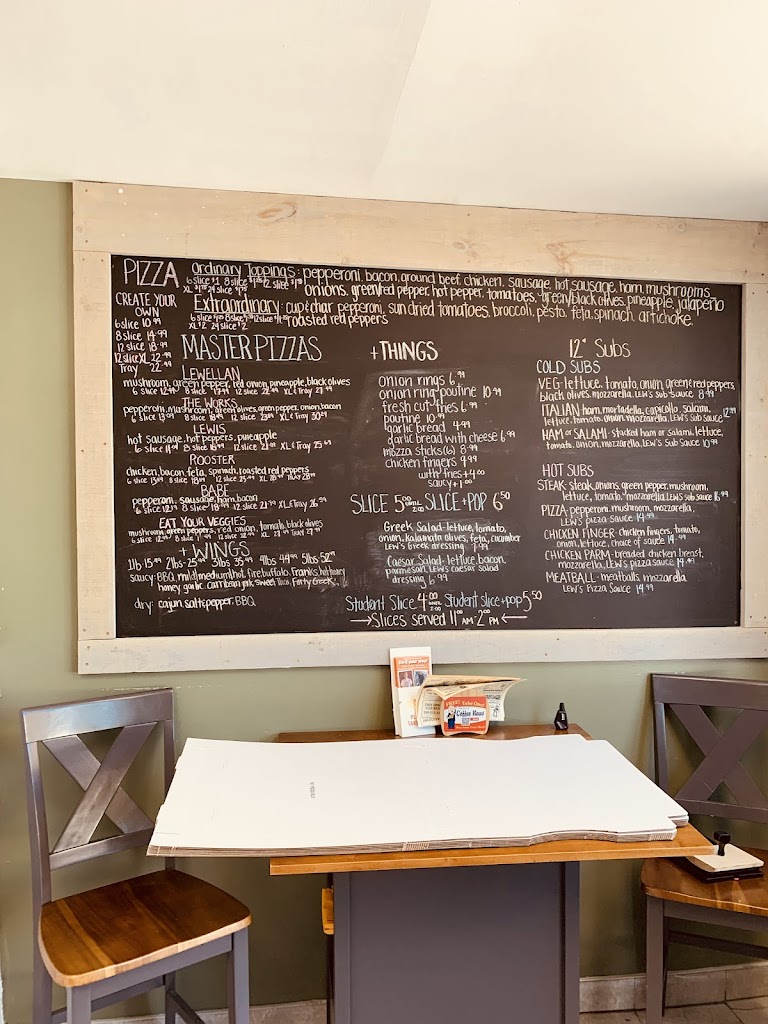 PIZZA
Ordinary Toppings: pepperoni, bacon, ground beef, chicken, sausage, hot sausage, ham, mushrooms
onions, green/red pepper, hot pepper, tomatoes, green/black olives, pineapple, jalapeño
Extraordinary: cup & char pepperoni, sun dried tomatoes, broccoli, pesto, feta, spinach, artichoke,
XL $2 24 slice $2
roasted red peppers
CREATE YOUR
OWN
6 slice 10.99
8 slice 14.99
12 slice 18.99
12 slice XL 22.99
Tray 22.99
MASTER PIZZAS
LEWELLAN
mushroom, green pepper, red onion, pineapple, black olives
THE WORKS
pepperoni, mushroom, green olives, green pepper, onion, bacon
LEWIS
hot sausage, hot peppers, pineapple
ROOSTER
chicken, bacon, feta, spinach, roasted red peppers
BABE
pepperoni, sausage, ham, bacon
EAT YOUR VEGGIES
mushroom, green peppers, red onion, tomato, black olives
+ WINGS
1lb 15.99 2lbs 25.99 3lbs 35.99 4lbs 44.99 5lbs 52.99
saucy: BBQ, mild, medium, hot, fire, buffalo, Franks, hot honey
honey garlic, Carribean jerk, Sweet Thai, Forty Creek,
dry: cajun, salt & pepper, BBQ
+ THINGS
onion rings 6.99
onion ring poutine 10.99
fresh cut fries 6.99
poutine 10.99
garlic bread 4.99
garlic bread with cheese 6.99
mozza sticks (6) 8.99
chicken fingers 9.99
with fries + 4.00
saucy + 1.00
SLICE 5.00 SLICE + POP 6.50
Greek Salad- lettuce, tomato,
onion, kalamata olives, feta, cucumber
Lew's Greek dressing 7.99
Caesar Salad- lettuce, bacon,
parmesan, Lew's caesar salad
dressing 6.99
Student Slice 4.00 Student slice + pop 5.50
Slices served 11AM-2PM
12" Subs
COLD SUBS
VEG- lettuce, tomato, onion, green & red peppers,
black olives, mozzarella, Lew's Sub Sauce 8.99
ITALIAN- ham, mortadella, capicollo, salami,
lettuce, tomato, onion, mozzarella, Lew's Sub Sauce 12.99
HAM or SALAMI- stacked ham or salami, lettuce,
tomato, onion, mozzarella, Lew's Sub Sauce 10.99
HOT SUBS
STEAK- steak, onions, green pepper, mushroom,
lettuce, tomato, mozzarella, Lew's sub sauce
PIZZA- pepperoni, mushroom, mozzarella,
Lew's pizza sauce 14.99
CHICKEN FINGER- chicken fingers, tomato,
onion, lettuce, choice of sauce 14.99
CHICKEN PARM- breaded chicken breast,
mozzarella, Lew's pizza sauce 14.99
MEATBALL- meatballs, mozzarella
Lew's Pizza Sauce 14.99
Coffee News